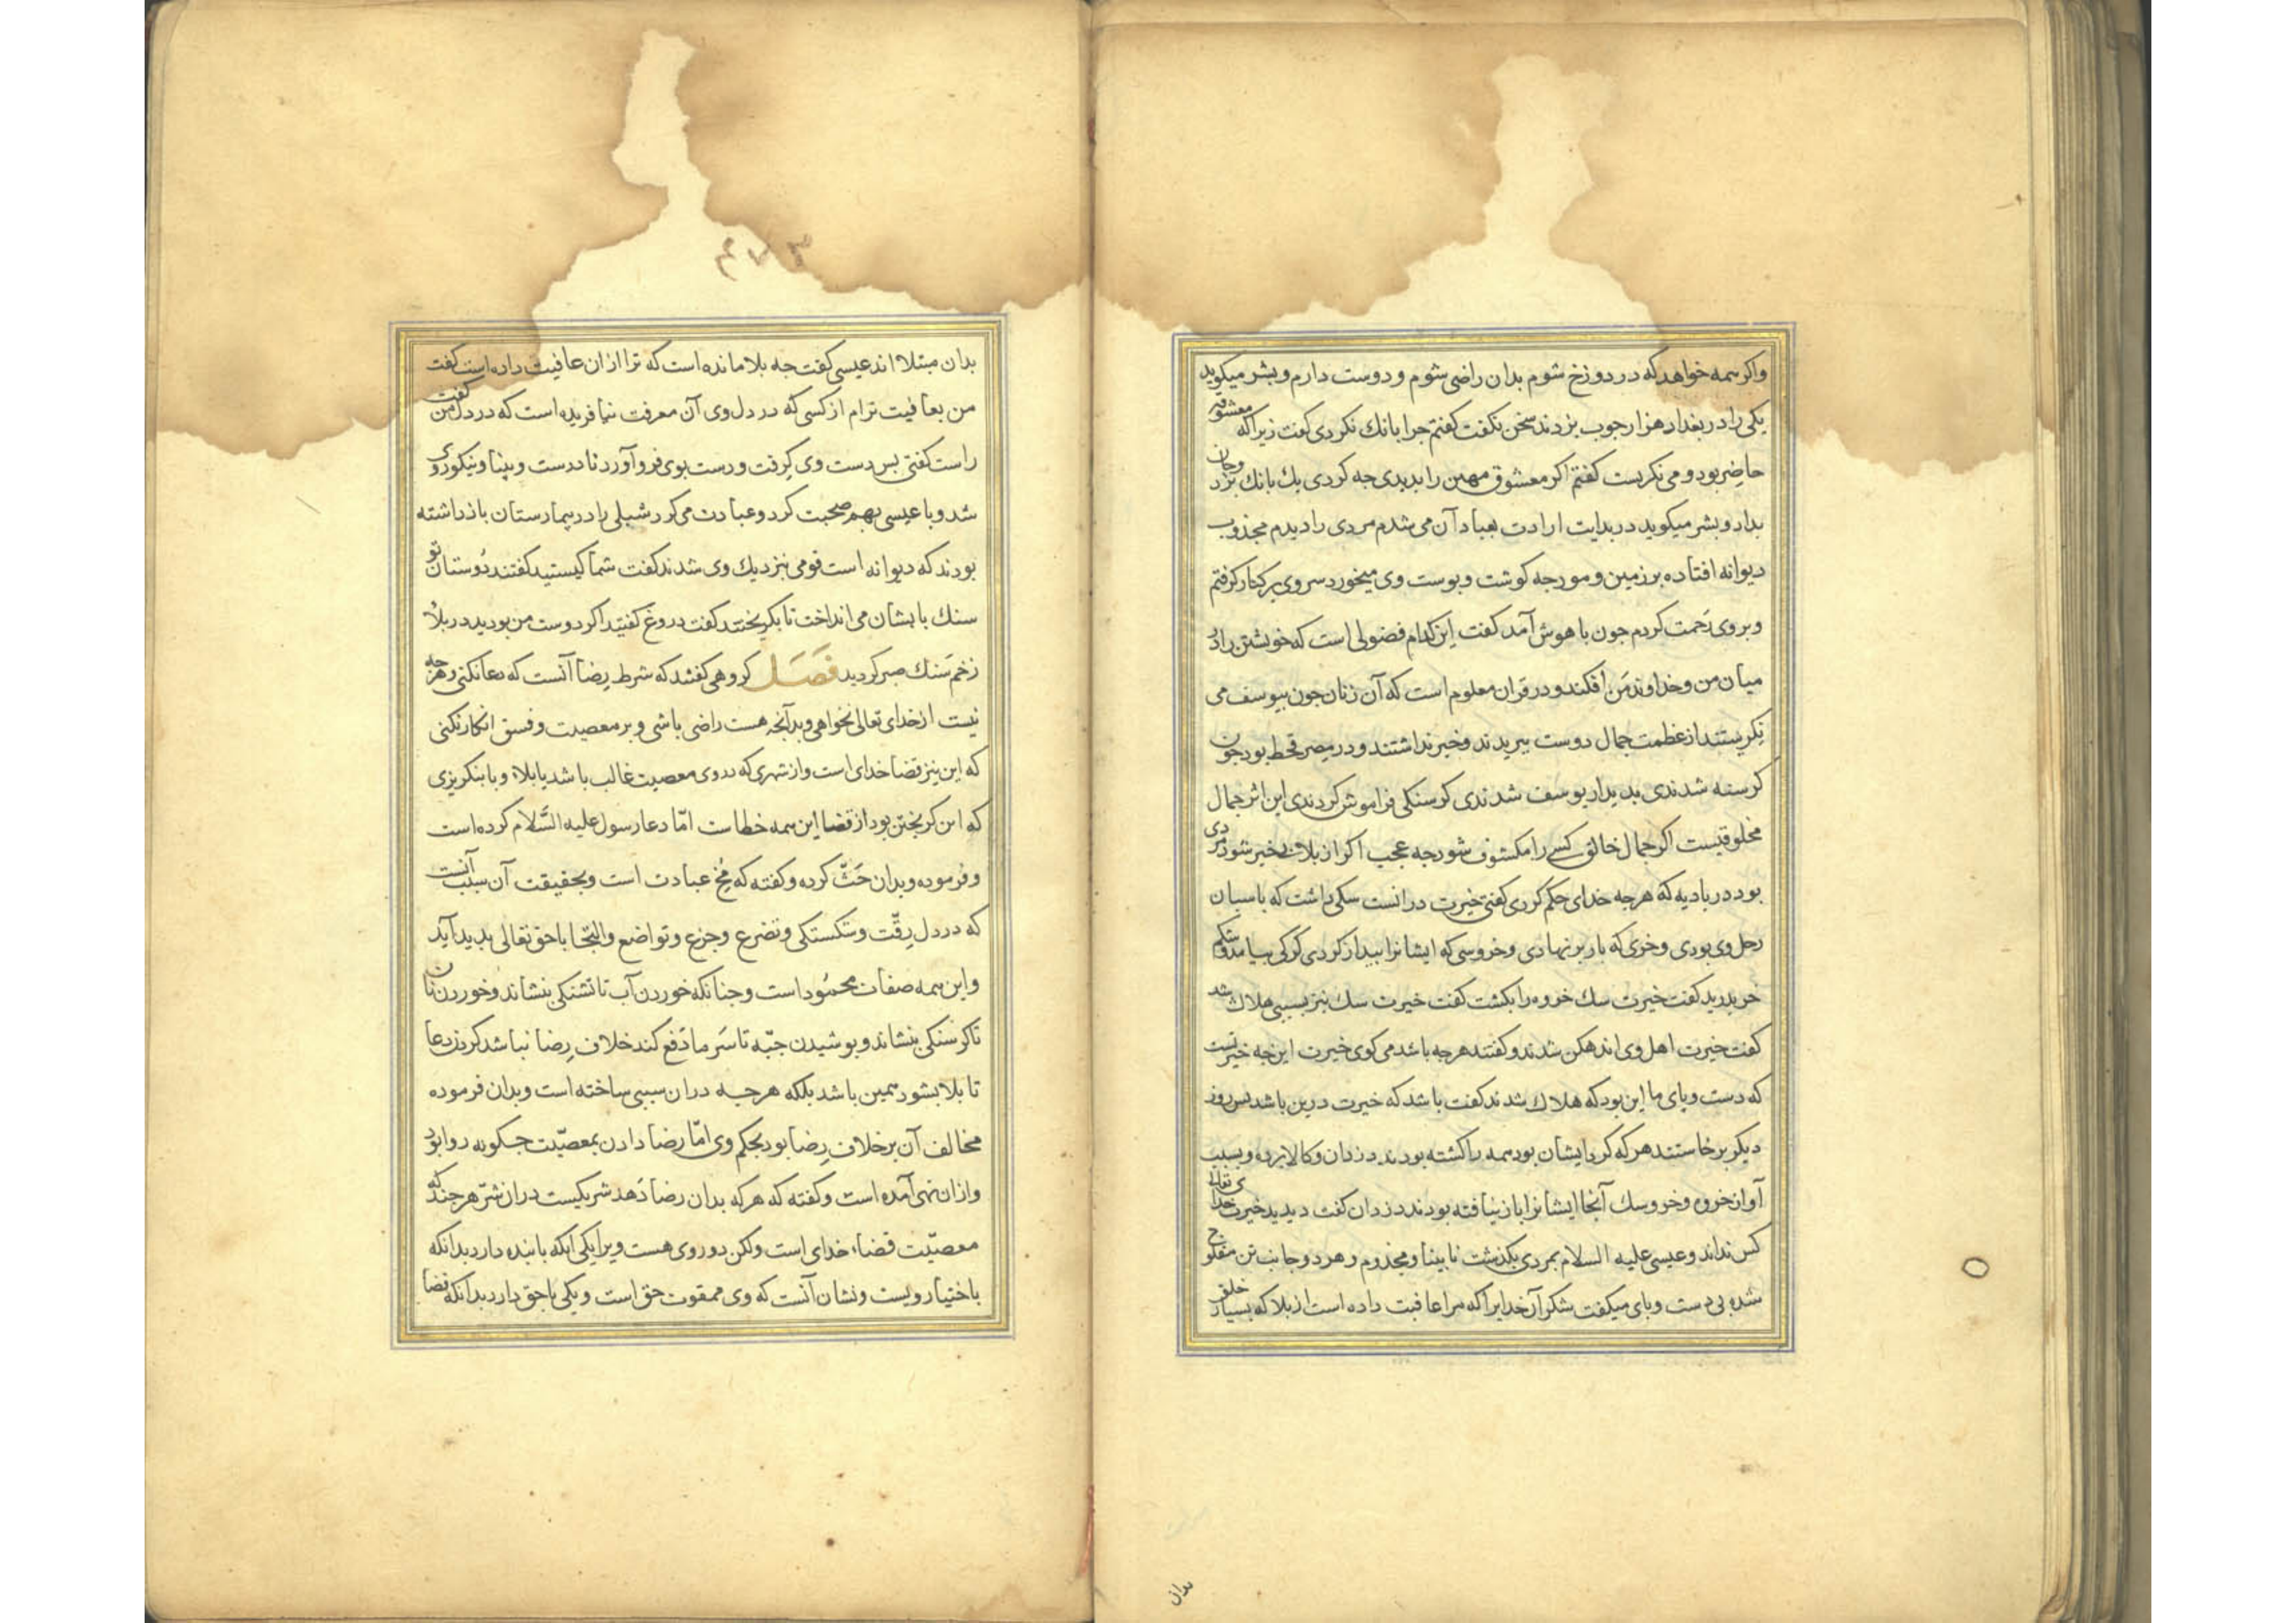 واکر همه خواهد که در دوزخ شوم بدان راضی شوم و دوست دارم و بشر میکوید
یکی را در بغداد هزار جوب بزدند سخن نکفت کفتم جرا بانك نکردی کفت زیرا که معشوقه
حاضر بود و می نکریست کفتم اکر معشوق مهین را بدیدی جه کردی یك بانك بزد و جان
بداد و بشر میکوید در بدایت ارادت بعبادان می شدم مردی را دیدم مجذوب
دیوانه افتاده بر زمین و مورجه کوشت و بوست وی میخورد سر وی بر کنار کرفتم
و بر وی رحمت کردم جون با هوش آمد کفت این کدام فضولی است که خویشتن را در
میان من و خداوند من افکند و در قران معلوم است که آن زنان جون بیوسف می
نکریستند از عظمت جمال دوست ببریدند و خبر نداشتند و در مصر قحط بود جون
کرسنه شدندی بدیدار یوسف شدندی کرسنکی فراموش کردندی این اثر جمال
مخلوقیست اکر جمال خالق کسی را مکشوف شود جه عجب اکر از بلا بی خبر شود مردی
بود در بادیه که هرجه خدای حکم کردی کفتی خیرت درانست سکی داشت که باسبان
رحل وی بودی و خری که بار بر نهادی و خروسی که ایشانرا بیدار کردی کرکی بیامد و شکم
خر بدرید کفت خیرت سك خروه را بکشت کفت خیرت سك نیز بسببی هلاك شد
کفت خیرت اهل وی اندهکن شدند و کفتند هرجه باشد می کوی خیرت این جه خیرتست
که دست و بای ما این بود که هلاك شدند کفت باشد که خیرت درین باشد بس روز
دیکر برخاستند هر که کرد ایشان بود همه را کشته بودند دزدان و کالا برده و بسبب
آواز خروه و خر و سك آنجا ایشانرا باز نیافته بودند دزدان کفت دیدید خیرت خدای تعالی
کس نداند و عیسی علیه السلام بمردی بکذشت نابینا و مجذوم و هر دو جانب تن مفلوج
شده بی دست و بای میکفت شکر آن خدایرا که مرا عافیت داده است از بلا که بسیار خلق
بدان
۳۷۳
بدان مبتلااند عیسی کفت جه بلا مانده است که ترا از ان عافیت داده است کفت
من بعافیت ترام از کسی که در دل وی آن معرفت نیافریده است که در دل من کفت
راست کفتی بس دست وی کرفت و دست بوی فرو آورد تا درست و بینا و نیکو روی
شد و با عیسی بهم صحبت کرد و عبادت می کرد شبلی را در بیمارستان بازداشته
بودند که دیوانه است قومی بنزدیك وی شدند کفت شما کیستید کفتند دوستان تو
سنك بایشان می انداخت تا بکریختند کفت دروغ کفتید اکر دوست من بودید در بلا
زخم سنك صبر کردید فصل کروهی کفتند که شرط رضا آنست که دعا نکنی و هرجه
نیست از خدای تعالی نخواهی و بدآنجه هست راضی باشی و بر معصیت و فسق انکار نکنی
که این نیز قضا خدای است و از شهری که دروی معصیت غالب باشد یا بلا و وبا بنکریزی
که این کریختن بود از قضا این همه خطاست امّا دعا رسول علیه السّلام کرده است
و فرموده و بدان حثّ کرده و کفته که مخ عبادت است و بحقیقت آن سبب آنست
که در دل رقّت و شکستکی و تضرع و جزع و تواضع و التجا با حق تعالی بدید آید
و این همه صفات محمود است و جنانکه خوردن آب تا تشنکی بنشاند و خوردن نان
تا کرسنکی بنشاند و بوشیدن جبّه تا سرما دفع کند خلاف رضا نباشد کردن دعا
تا بلا بشود همین باشد بلکه هرجه در ان سببی ساخته است و بدان فرموده
مخالف آن بر خلاف رضا بود بحکم وی امّا رضا دادن بمعصیّت جکونه روا بود
و از ان نهی آمده است و کفته که هر که بدان رضا دهد شریکیست در ان شرّ هرجند که
معصیّت قضاء خدای است ولکن دو روی هست ویرا یکی آنکه با بنده دارد بدانکه
باختیار ویست و نشان آنست که وی ممقوت حق است و یکی با حق دارد بدانکه قضا